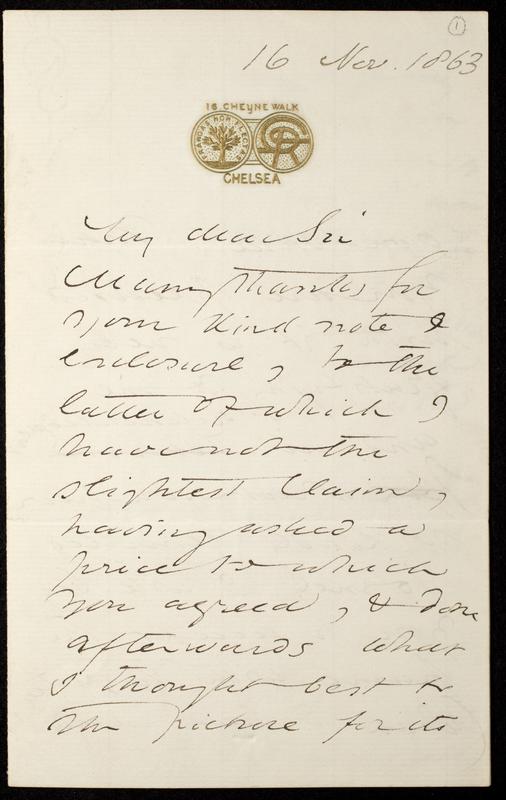 1
16 Nov. 1863
16 CHEYNE WALK
FRANGAS NON FLECTAS
CHELSEA
My dear Sir
Many thanks for
your kind note &
enclosure, to the
latter of which I
have not the
slightest claim,
having asked a
price to which
you agreed, & done
afterwards what
I thought best to
the picture for its